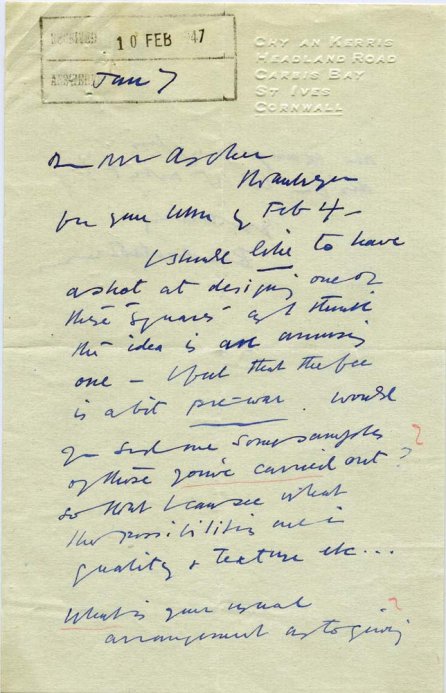 RECEIVED 10 FEB 47
Jan 7
CHY AN KERRIS
HEADLAND ROAD
CARBIS BAY
ST IVES
CORNWALL
Mr Ascher
Thank you
for your letter of Feb 4 –
I should like to have
a shot at designing one of
these "squares" as I think
the idea is an amusing
one – I feel that the fee
is a bit pre-war. Would
you send me some samples
of those you've carried out?
so that I can see what
the possibilities are in
quality & texture etc...
What is your usual
arrangement as to giving